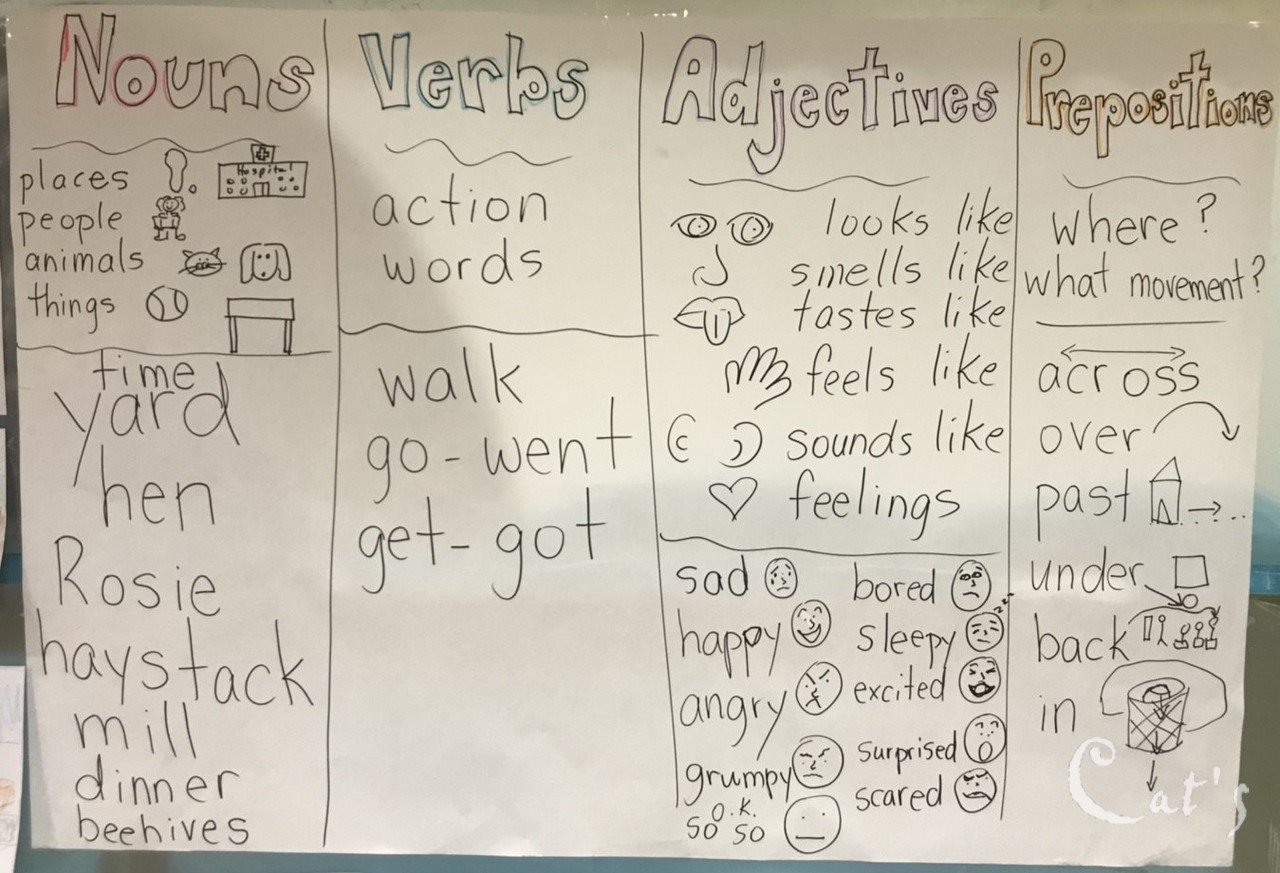 Nouns
places
Hospital
people
animals
things
time
yard
hen
Rosie
haystack
mill
dinner
beehives
Verbs
action
words
walk
go - went
get - got
Adjectives
looks like
smells like
tastes like
feels like
sounds like
feelings
sad
happy
angry
grumpy
O.K.
so so
bored
zzz
sleepy
excited
surprised
scared
Prepositions
where?
what movement?
across
over
past
under
back
in
Cat's